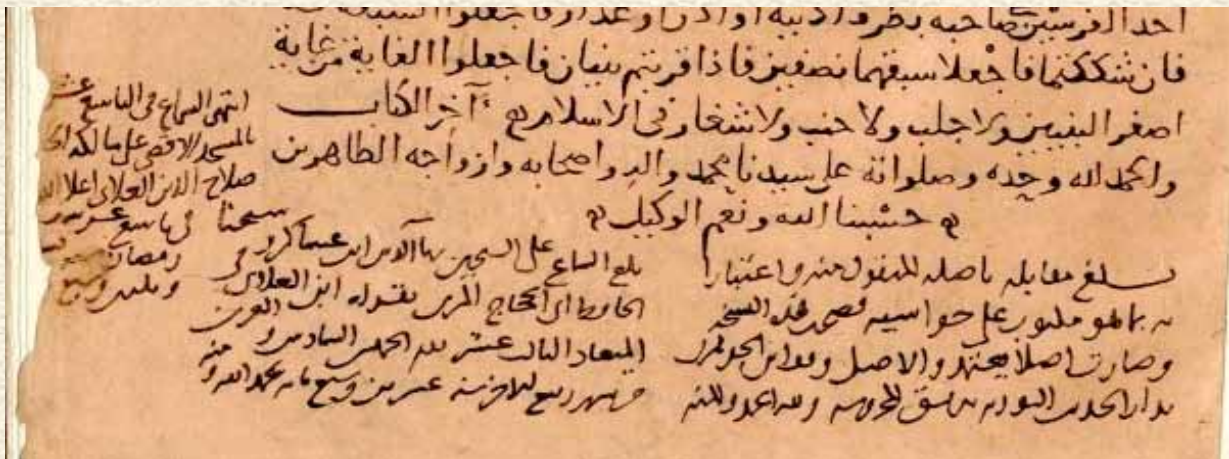 احد الفرسين صاحبه بطرف اذنيه او اذن او عذار فاجعلوا السبقة له
فان شككتما فاجعلا سبقهما نصفين فاذا قرنتم ثنيان فاجعلوا الغاية من غاية
اصغر الثنيين ولا جلب ولا جنب ولا شغار في الاسلام آخر الكتاب
والحمد لله وحده وصلواته على سيدنا محمد واله واصحابه وازواجه الطاهرين
حسبنا الله ونعم الوكيل
بلغ مقابله باصله المنقول منه واعتبارا
به بما هو مكتوب على حواسيه فصحت هذه النسخة
وصارت اصلا يعتمد والاصل
بدار الحديث النوريه بدمشق المحروسه ولله الحمد والمنه
بلغ السماع على الشيخين بهاء الدين ابن عساكر و
الحافظ ابي الحجاج المزي بقراءة ابن العلائي في
الميعاد الثالث عشر يوم الخميس السادس و
شهر ربيع الاخر سنة عشرين وسبع مائه بحمد الله و منه
انتهى السماع في التاسع عشر
بالمسجد الاقصى على مالكه
صلاح الدين العلائي اعلا الله
شيخنا في تاسع عشرين
رمضان
وثلاثين وسبع